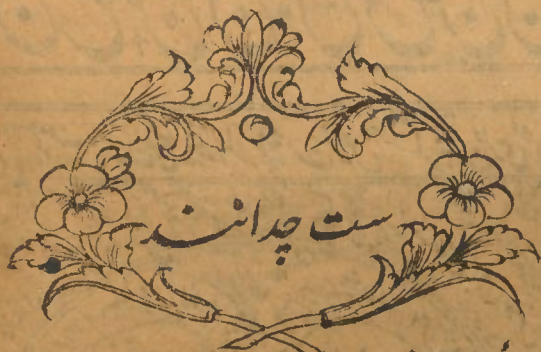 ست چدانند